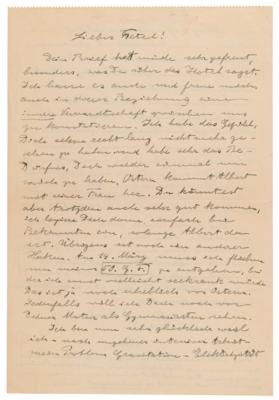 Liebes Tetel!
Dein Brief hat mich sehr gefreut,
besonders, was Du über das Hotel sagst.
Ich hasse es auch und freue mich,
auch in dieser Beziehung eine
innere Verwandtschaft zwischen uns
zu konstatieren. Ich habe das Gefühl,
Dich schon recht lang nicht mehr ge-
sehen zu haben und habe sehr das Be-
dürfnis, Dich wieder einmal um
mich zu haben. Ostern kommt Albert
mit seiner Frau her. Du könntest
aber trotzdem auch sehr gut kommen,
ich logiere Dich dann einfach bei
Bekannten ein, solange Albert da
ist. Übrigens ist noch ein anderer
Haken. Am 14. März muss ich fliehen
um meinem 50. G.t. zu entgehen, bei
der ich sonst vielleicht seekrank würde
Das ist ja noch erheblich vor Ostern.
Jedenfalls will ich Dich noch vor
Deiner Matur als Gymnasiasten sehen.
Ich bin nun sehr glücklich, weil
ich - nach ungeheuer Arbeit -
mein Problem Gravitation - Elektrizität